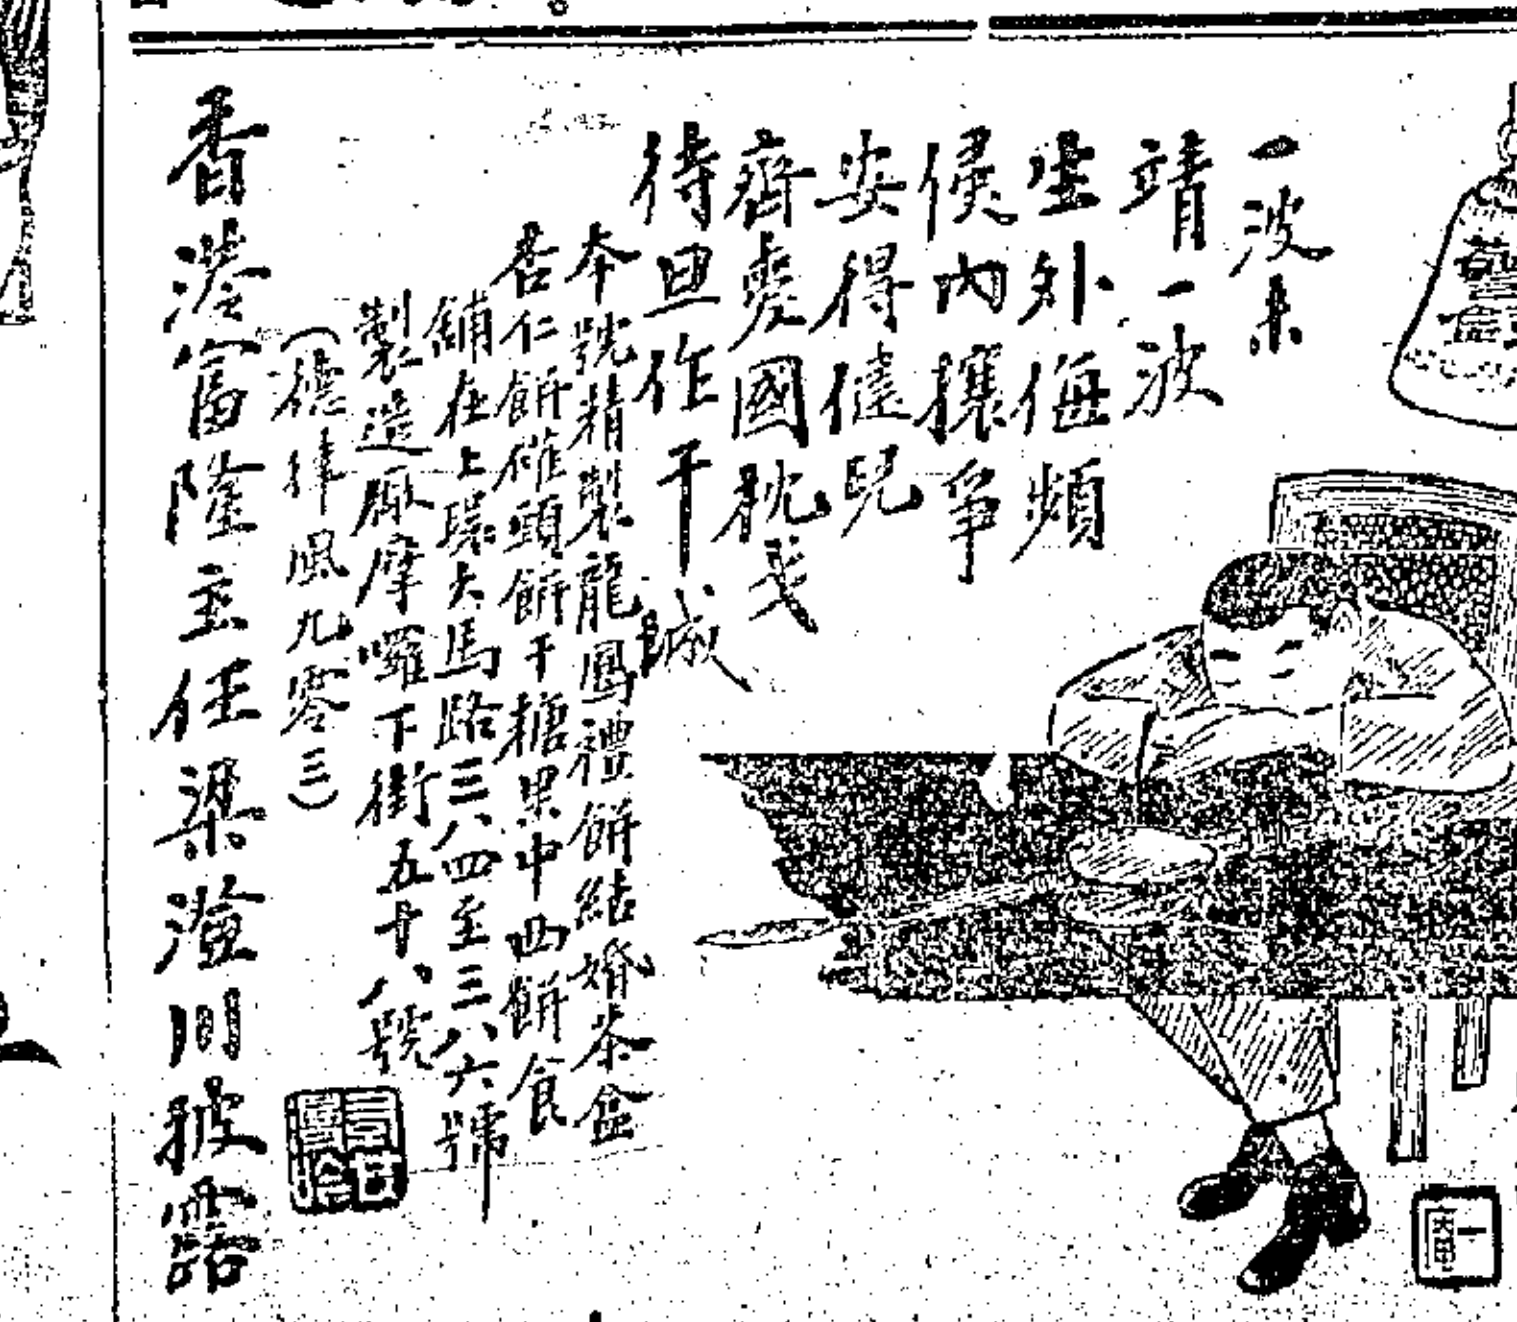 一波未
靖一波
生外侮頻
侵內攘爭
安得健兒
齊愛國枕戈
待旦作干城
本號精製龍鳳禮餅結婚茶盒
杏仁餅磪頭餅干糖果中西餅食
舖在上環大馬路三八四至三八六號
製造廠摩囉下街五十八號
（德律風九零三）
香港富隆主任梁澄川披露
警言